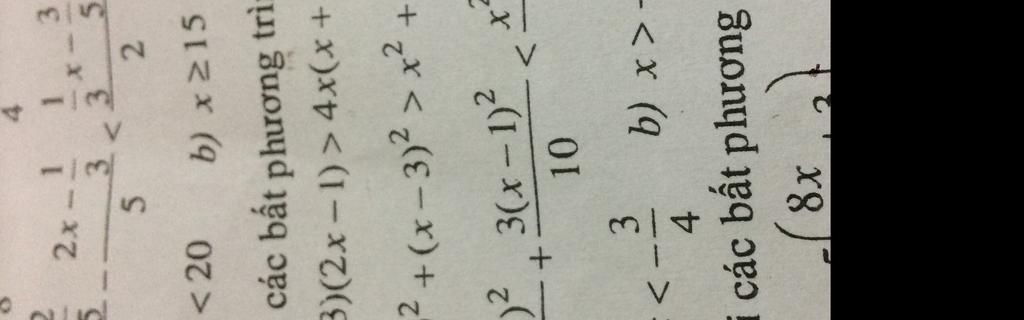 4
2x - 1/3 / 5 < 1/3 x - 3/5 / 2
< 20 b) x ≥ 15
các bất phương
3)(2x - 1) > 4x(x +
² + (x - 3)² > x² +
)² + 3(x - 1)² / 10 < x²
< - 3/4 b) x >
các bất phương
8x